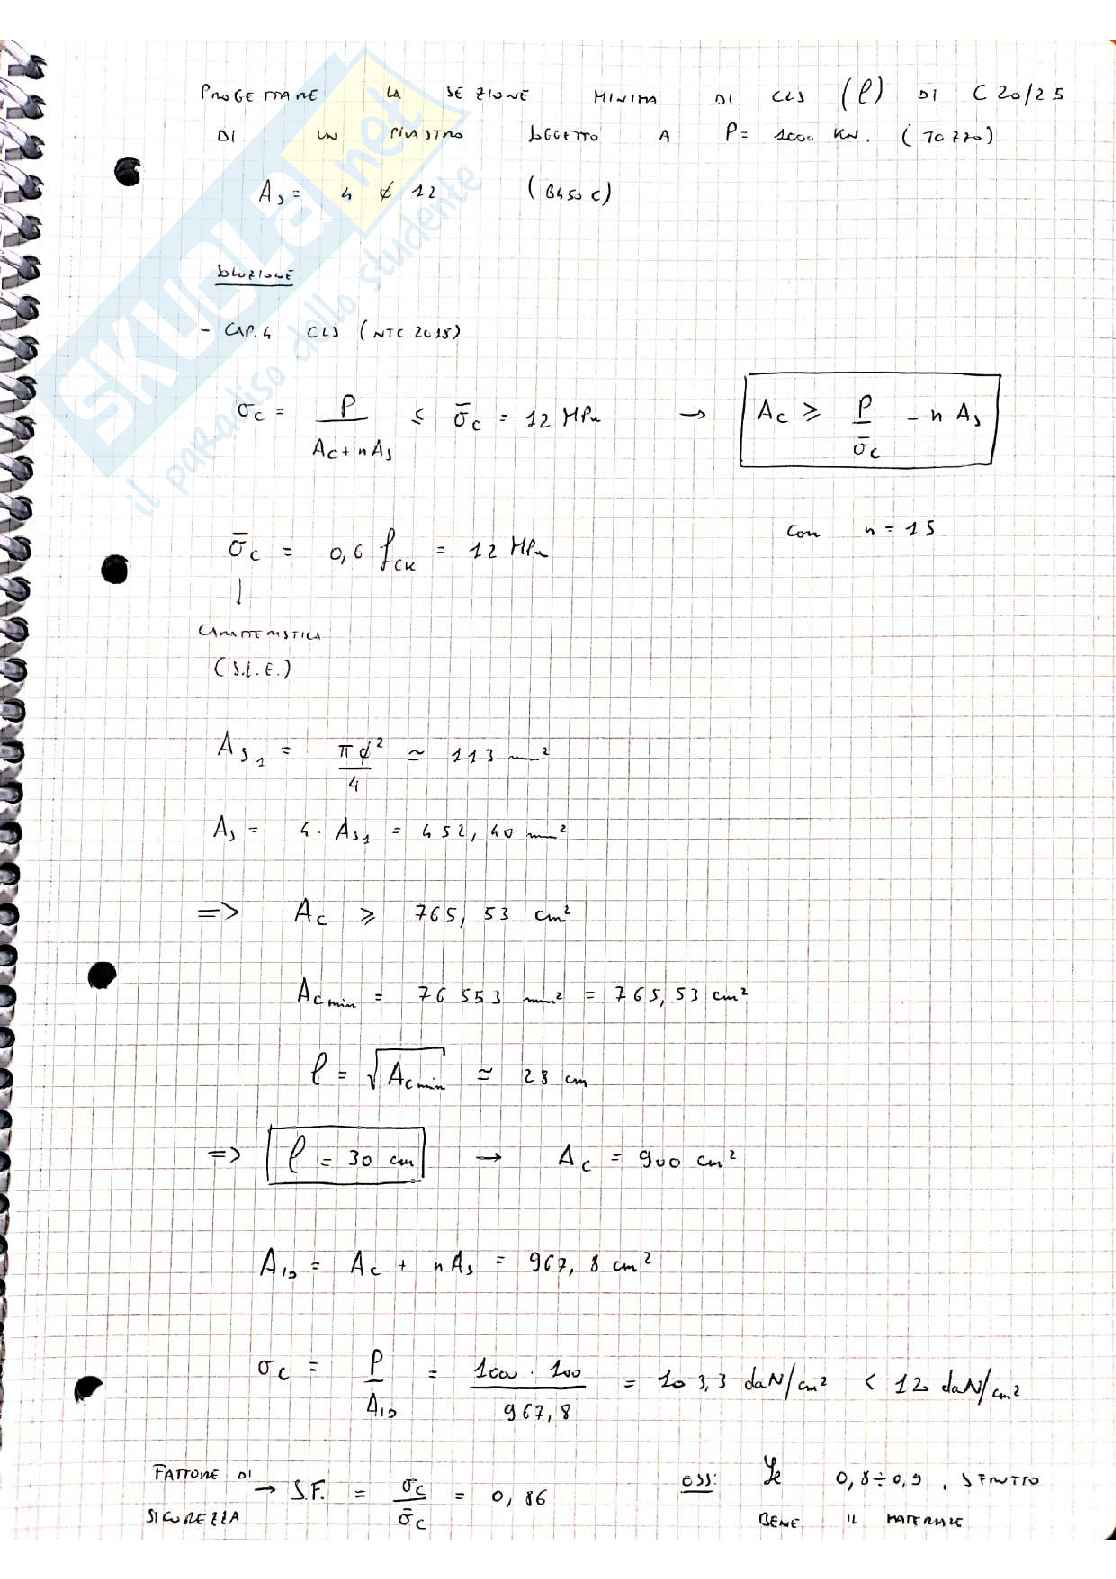 PROGETTARE LA SEZIONE MINIMA DI CLS (l) DI C20/25
DI UN PILASTRO SOGGETTO A P = 1000 KN. (TOZZO)
As = 4 ø 12 (B450C)
SOLUZIONE
- CAP.4 CLS (NTC 2018)
σc = P / (Ac + nAs) ≤ σ̄c = 12 MPa → Ac ≥ P/σ̄c - nAs
con n = 15
σ̄c = 0,6 fck = 12 MPa
↓
CARATTERISTICA
(S.L.E.)
As1 = πø²/4 ≃ 113 mm²
As = 4 · As1 = 452,40 mm²
=> Ac ≥ 765,53 cm²
Acmin = 76553 mm² = 765,53 cm²
l = √Acmin ≃ 28 cm
=> l = 30 cm → Ac = 900 cm²
Aid = Ac + nAs = 967,8 cm²
σc = P/Aid = 1000 · 100 / 967,8 = 103,3 daN/cm² < 120 daN/cm²
FATTORE DI SICUREZZA → S.F. = σc/σ̄c = 0,86
OSS: Se 0,8÷0,9, SFRUTTO
BENE IL MATERIALE
SKUOLA.net
il paradiso dello studente